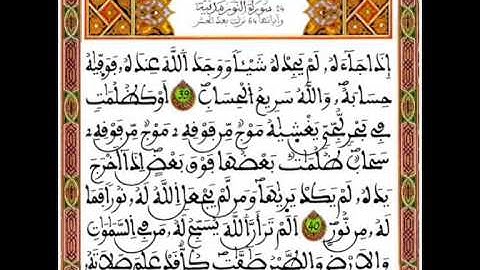 24 سورة النور مدنية
وآياتها 64 نزلت بعد الحشر
إِذَا جَآءَهُۥ لَمْ يَجِدْهُ شَيْـًٔا وَوَجَدَ اَ۬للَّهَ عِندَهُۥ فَوَفّ۪يٰهُ
حِسَابَهُۥ وَاللَّهُ سَرِيعُ اُ۬لْحِسَابِ 39 أَوْ كَظُلُمَٰتٍ
فِے بَحْرٍ لُّجِّيٍّ يَغْش۪يٰهُ مَوْجٌ مِّن فَوْقِهِۦ مَوْجٌ مِّن فَوْقِهِۦ
سَحَابٌ ظُلُمَٰتٌۢ بَعْضُهَا فَوْقَ بَعْضٍ اِذَآ أَخْرَجَ
يَدَهُۥ لَمْ يَكَدْ يَر۪يٰهَا وَمَن لَّمْ يَجْعَلِ اِ۬للَّهُ لَهُۥ نُوراً فَمَا
لَهُۥ مِن نُّورٍ 40 اَلَمْ تَرَ أَنَّ اَ۬للَّهَ يُسَبِّحُ لَهُۥ مَن فِے اِ۬لسَّمَٰوَٰتِ
وَالَارْضِ وَالطَّيْرُ صَٰٓفَّٰتٍ كُلٌّ قَدْ عَلِمَ صَلَاتَهُۥ